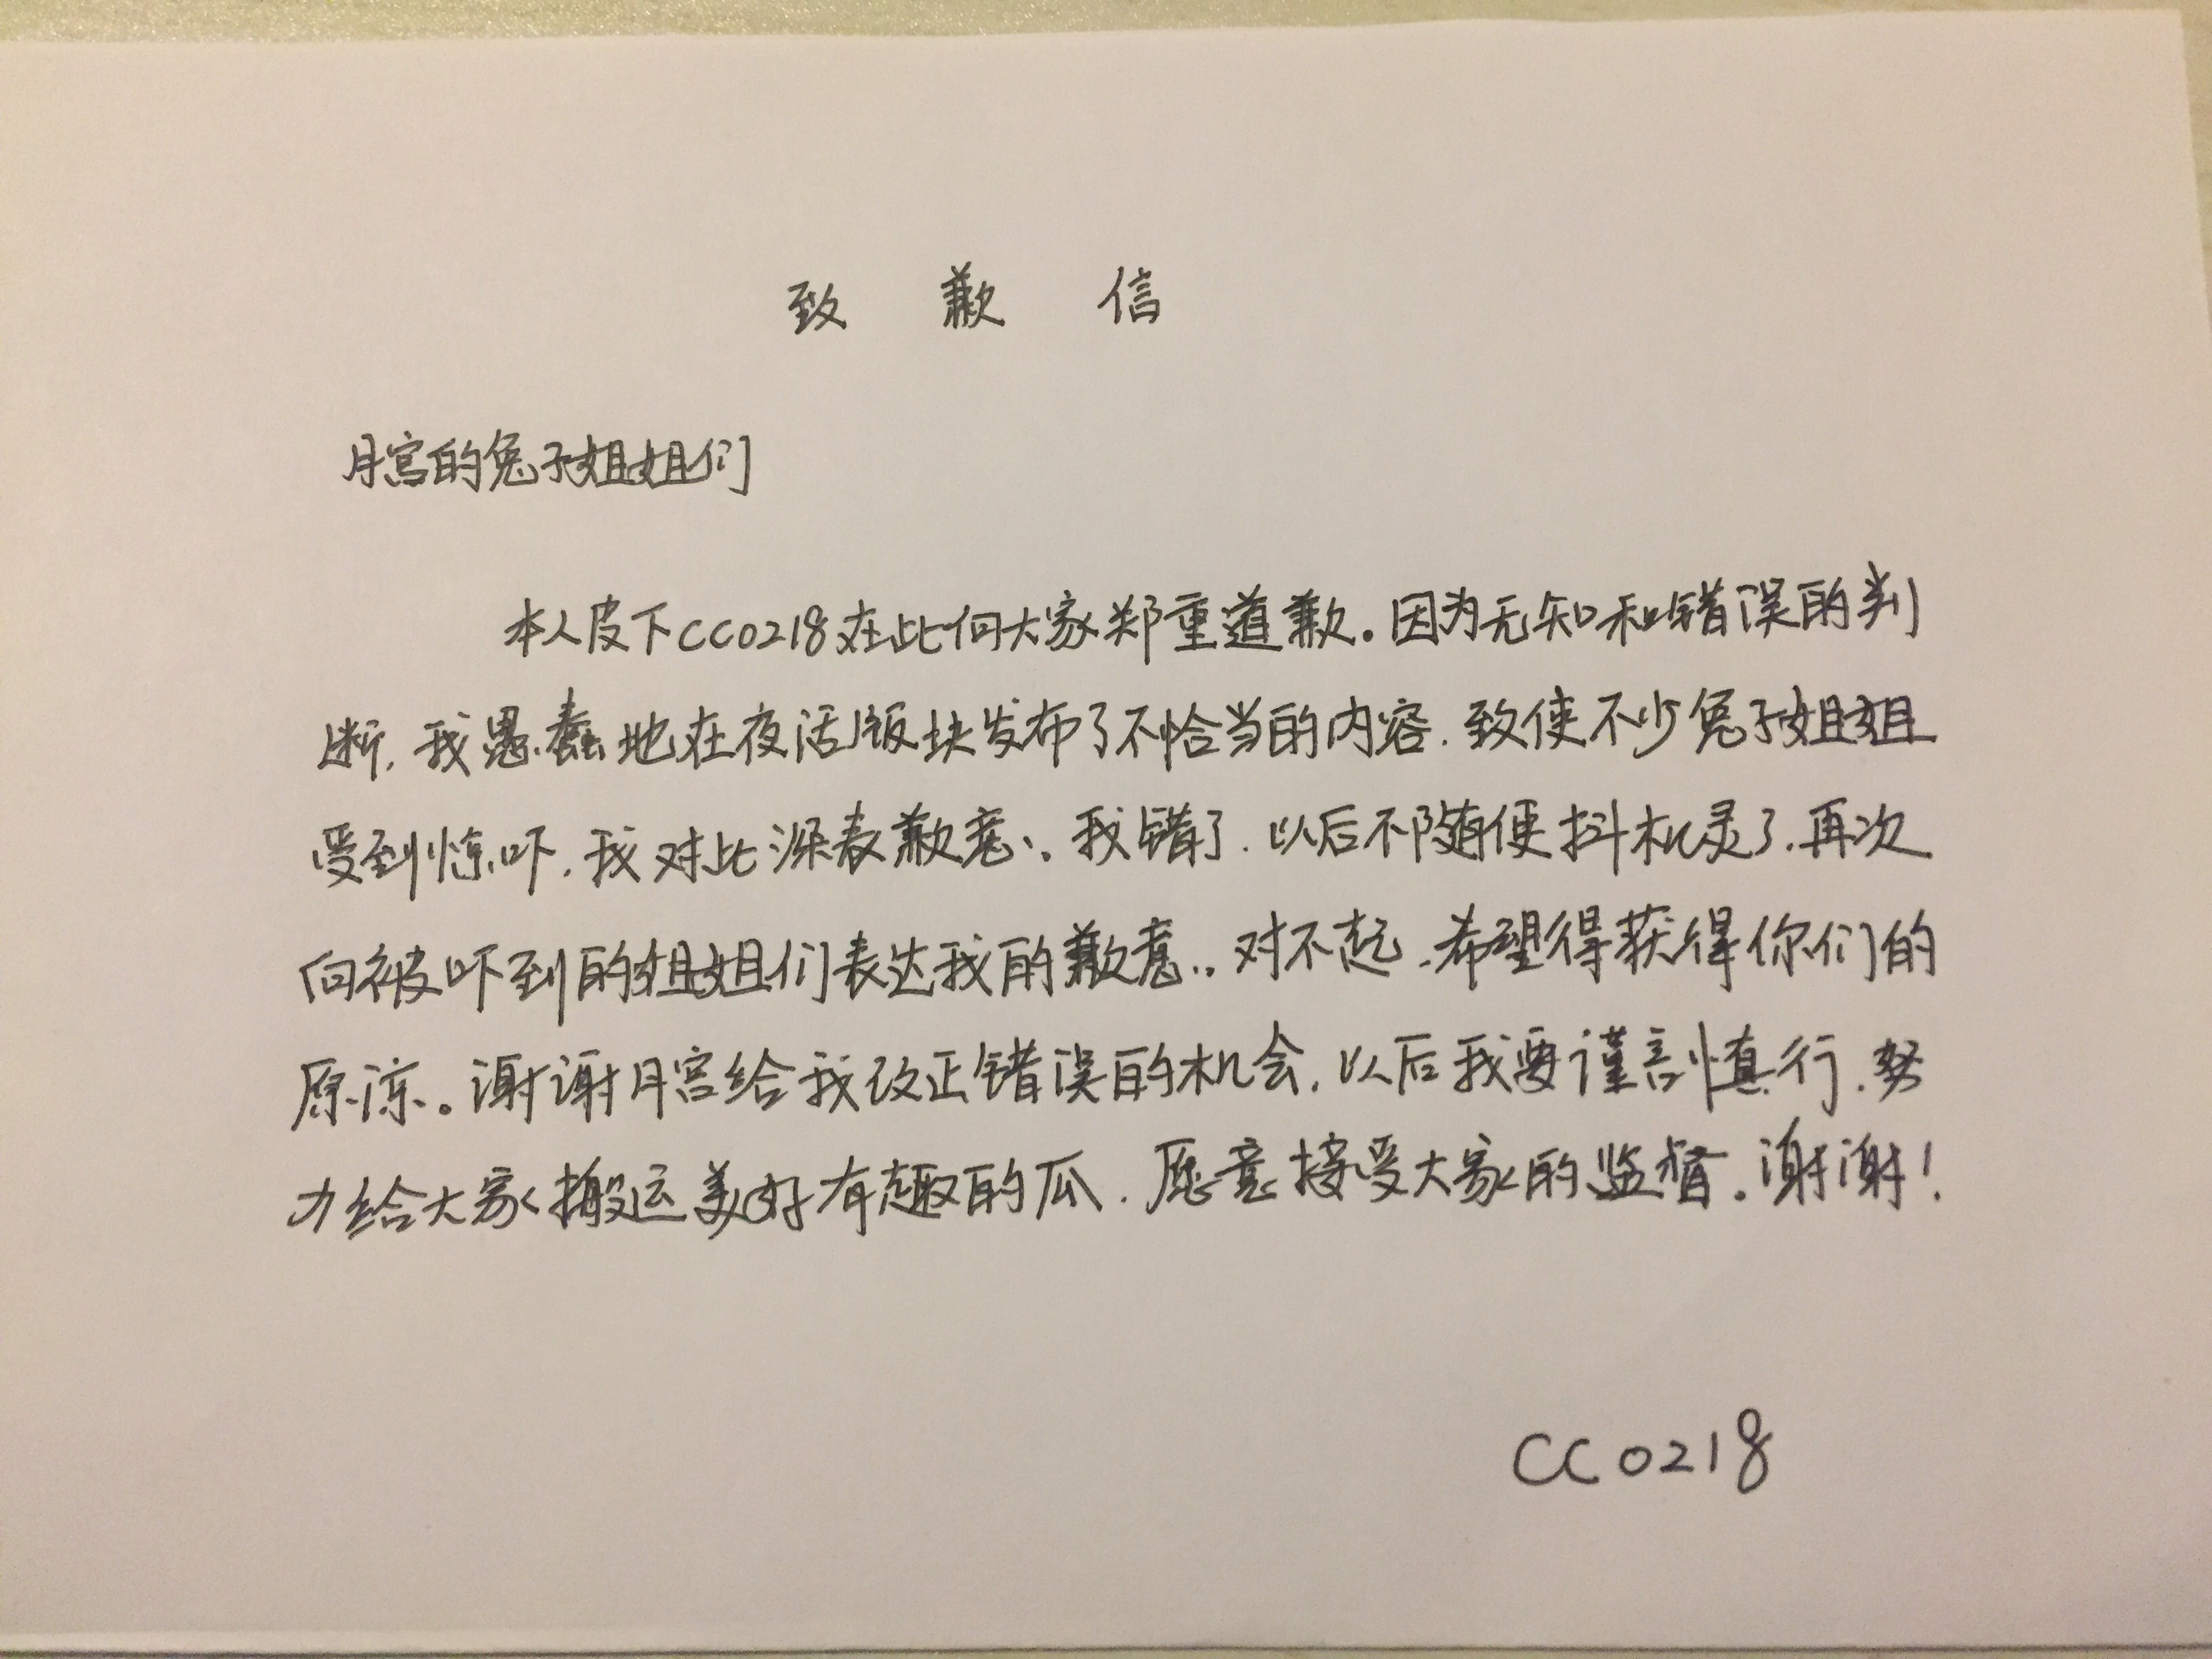 致 歉 信
月宫的兔子姐姐们
本人皮下CC0218在此向大家郑重道歉。因为无知和错误的判
断,我愚蠢地在夜活版块发布了不恰当的内容.致使不少兔子姐姐
受到惊吓,我对此深表歉意、我错了.以后不随便抖机灵了.再次
向被吓到的姐姐们表达我的歉意..对不起.希望得获得你们的
原谅。谢谢月宫给我改正错误的机会,以后我要谨言慎行.努
力给大家搬运美好有趣的瓜.愿意接受大家的监督。谢谢!
CC0218